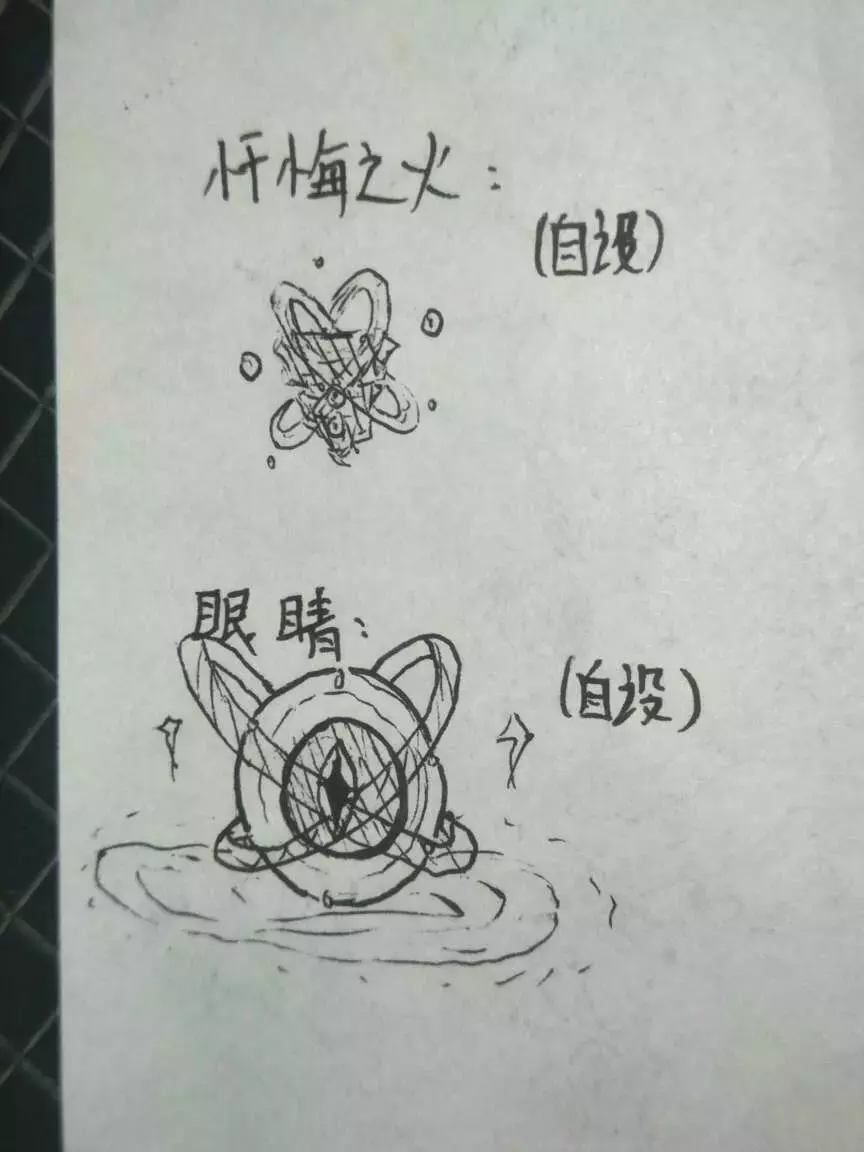 忏悔之火：
(自设)
眼睛：
(自设)